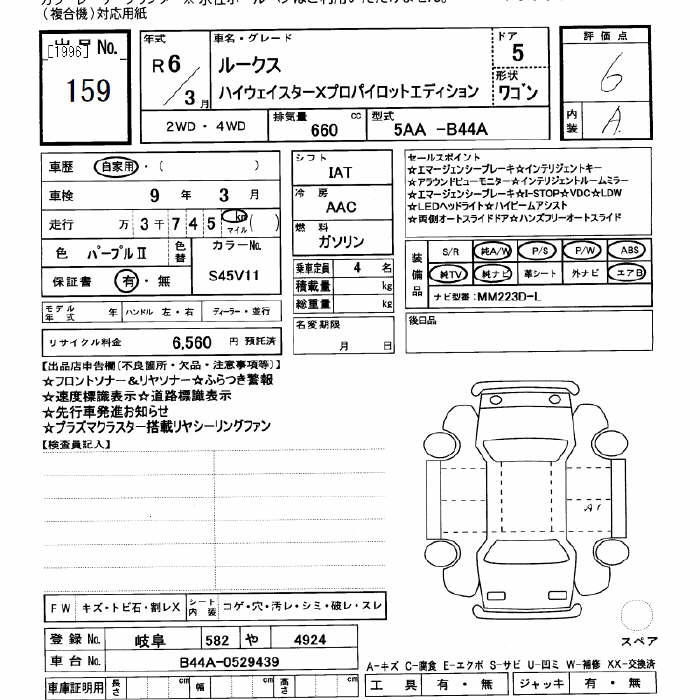 (複合機)対応用紙
出品 No.
[1996]
159
年式 R6/3月
車名・グレード
ルークス
ハイウェイスターXプロパイロットエディション
ドア 5
形状 ワゴン
2WD・4WD
排気量 660 cc
型式 5AA -B44A
評価点 6
内装 A
車歴 自家用・( )
車検 9年 3月
走行 万 3千 7 4 5 km マイル ( )
色 パープルⅡ 色替 カラーNo. S45V11
保証書 有・無
シフト IAT
冷房 AAC
燃料 ガソリン
乗車定員 4 名
積載量 kg
総重量 kg
セールスポイント
☆エマージェンシーブレーキ☆インテリジェントキー
☆アラウンドビューモニター☆インテリジェントルームミラー
☆エマージェンシーブレーキ☆I-STOP☆VDC☆LDW
☆LEDヘッドライト☆ハイビームアシスト
☆両側オートスライドドア☆ハンズフリーオートスライド
装備品
S/R 純A/W P/S P/W ABS
純TV 純ナビ 革シート 外ナビ エアB
ナビ型番:MM223D-L
モデル年式 年 ハンドル 左・右 ディーラー・並行
名変期限 月 日
後日品
リサイクル料金 6,560 円 預託済
【出品店申告欄(不良箇所・欠品・注意事項等)】
☆フロントソナー&リヤソナー☆ふらつき警報
☆速度標識表示☆道路標識表示
☆先行車発進お知らせ
☆プラズマクラスター搭載リヤシーリングファン
【検査員記入】
A1
FW キズ・トビ石・割レX シート内装 コゲ・穴・汚レ・シミ・破レ・スレ
スペア
登録No. 岐阜 582 や 4924
車台No. B44A-0529439
A-キズ C-腐食 E-エクボ S-サビ U-凹ミ W-補修 XX-交換済
車庫証明用 長さ cm 幅 cm 高さ cm
工具 有・無 ジャッキ 有・無